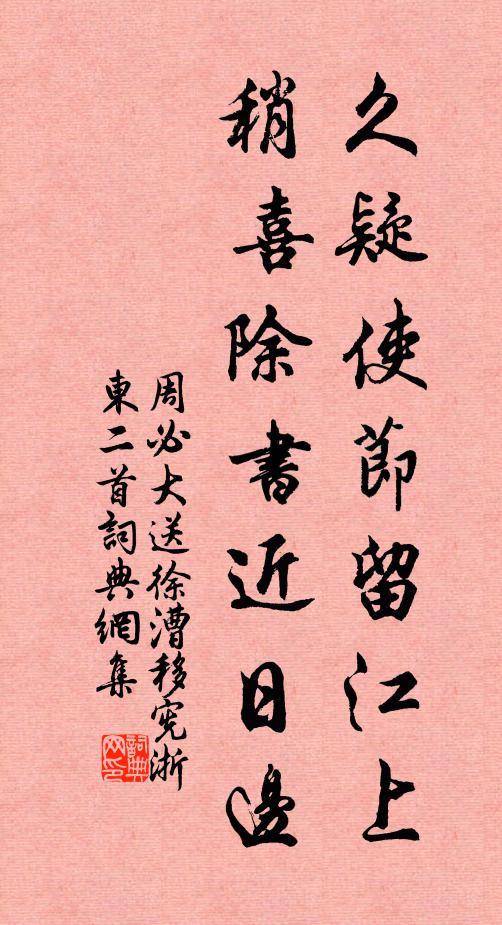 久疑使節留江上
稍喜除書近日邊
周必大送徐漕移宪浙
東二首詞典網集
詞典
网印